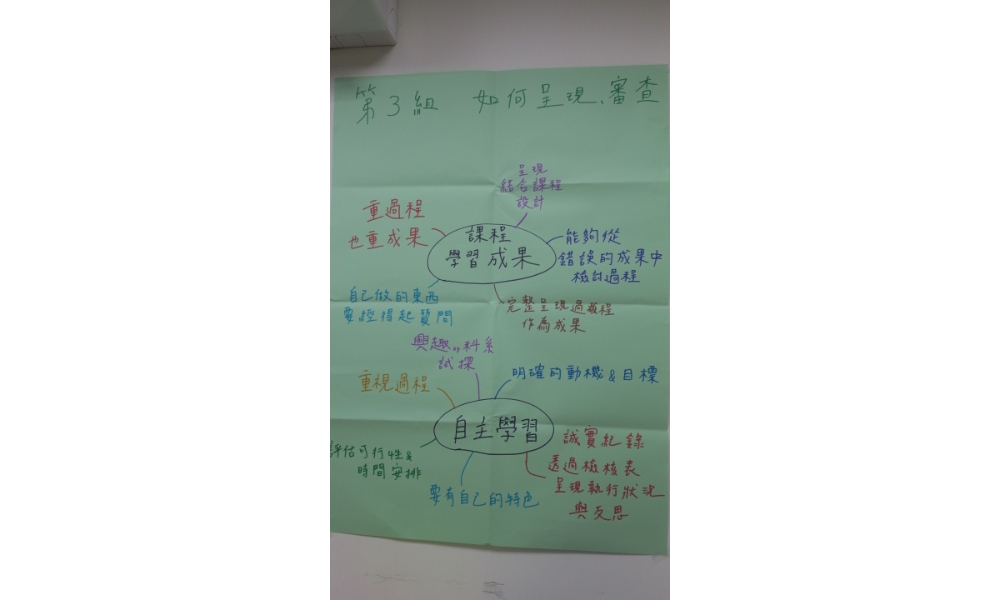 第3組 如何呈現、審查
呈現
結合課程
設計
重過程
也重成果
課程
學習成果
能夠從
錯誤的成果中
檢討過程
自己做的東西
要經得起質問
完整呈現過程
作為成果
興趣、科系
試探
重視過程
明確的動機&目標
自主學習
評估可行性&
時間安排
要有自己的特色
誠實紀錄
透過檢核表
呈現執行狀況
與反思